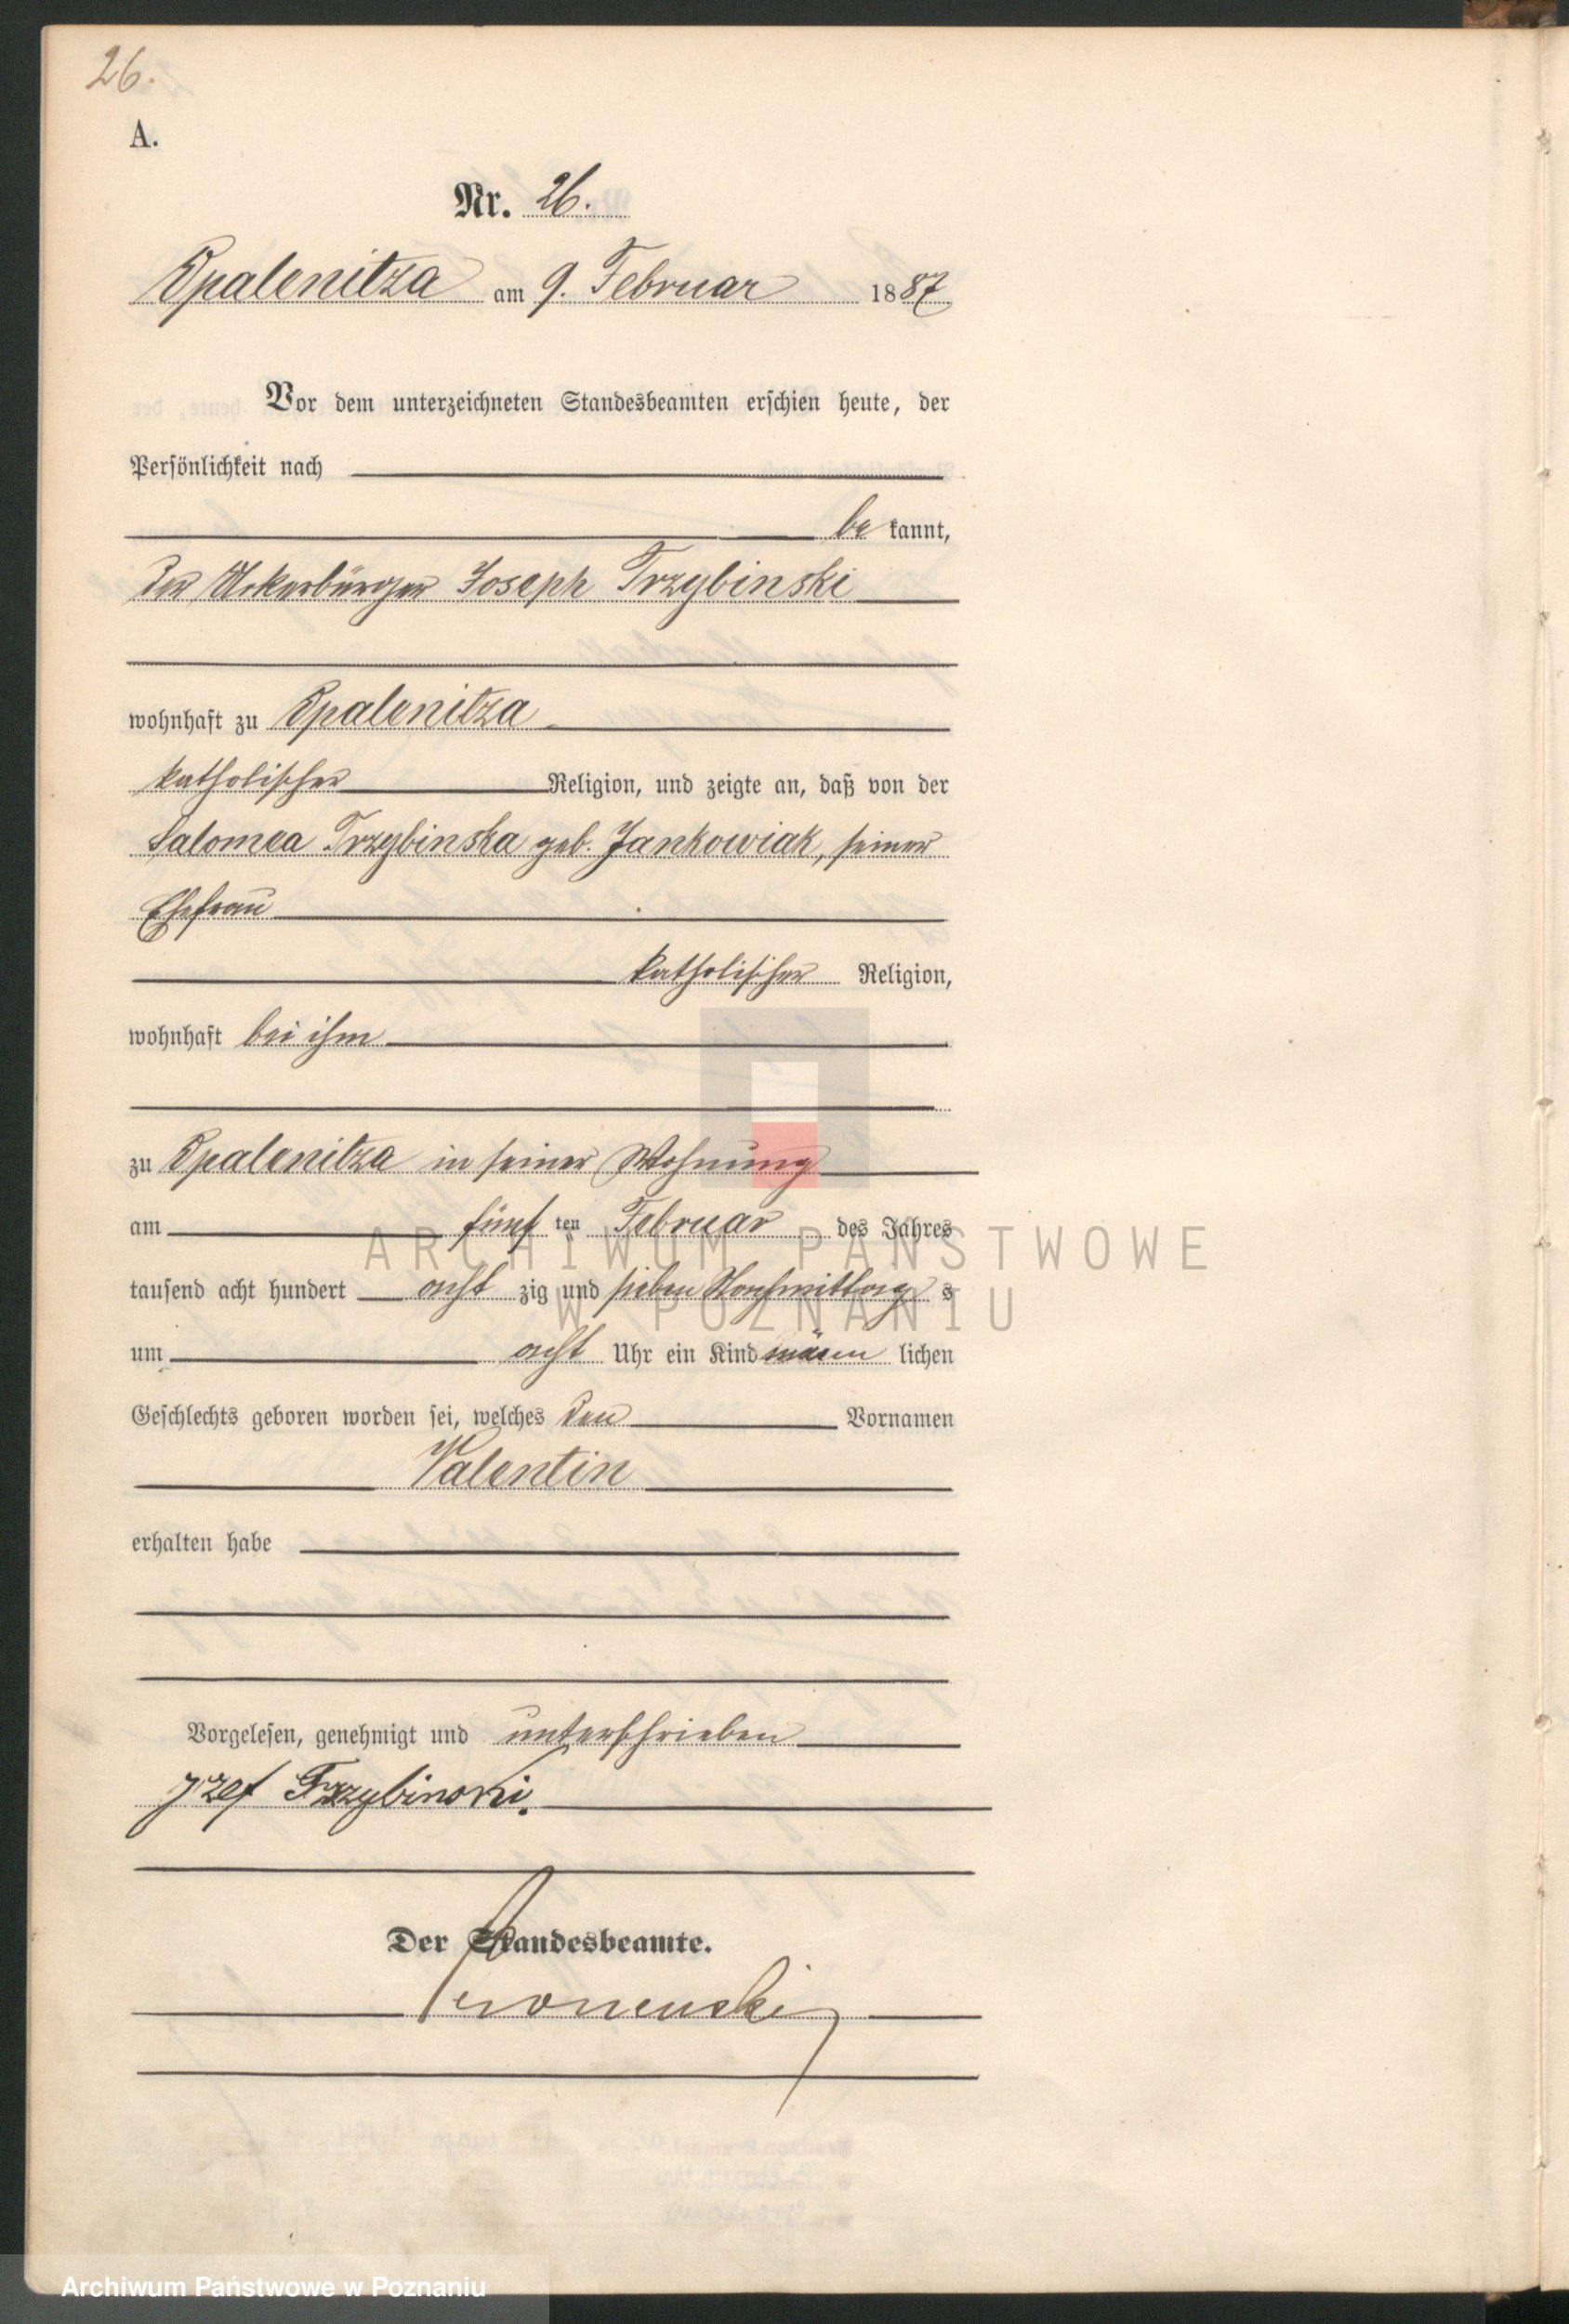 26.
A.
Nr. 26.
Opalenitza am 9. Februar 1887
Vor dem unterzeichneten Standesbeamten erschien heute, der
Persönlichkeit nach
be kannt,
der Ackerbürger Joseph Trzybinski
wohnhaft zu Opalenitza
katholischer Religion, und zeigte an, daß von der
Salomea Trzybinska geb. Jankowiak, seiner
Ehefrau
katholischer Religion,
wohnhaft bei ihm
zu Opalenitza in seiner Wohnung
am fünf ten Februar des Jahres
tausend acht hundert acht zig und sieben Nachmittag s
um acht Uhr ein Kind männ lichen
Geschlechts geboren worden sei, welches den Vornamen
Valentin
erhalten habe
Vorgelesen, genehmigt und unterschrieben
Trzybinski.
Der Standesbeamte.
ARCHIWUM PAŃSTWOWE
W POZNANIU
Archiwum Państwowe w Poznaniu